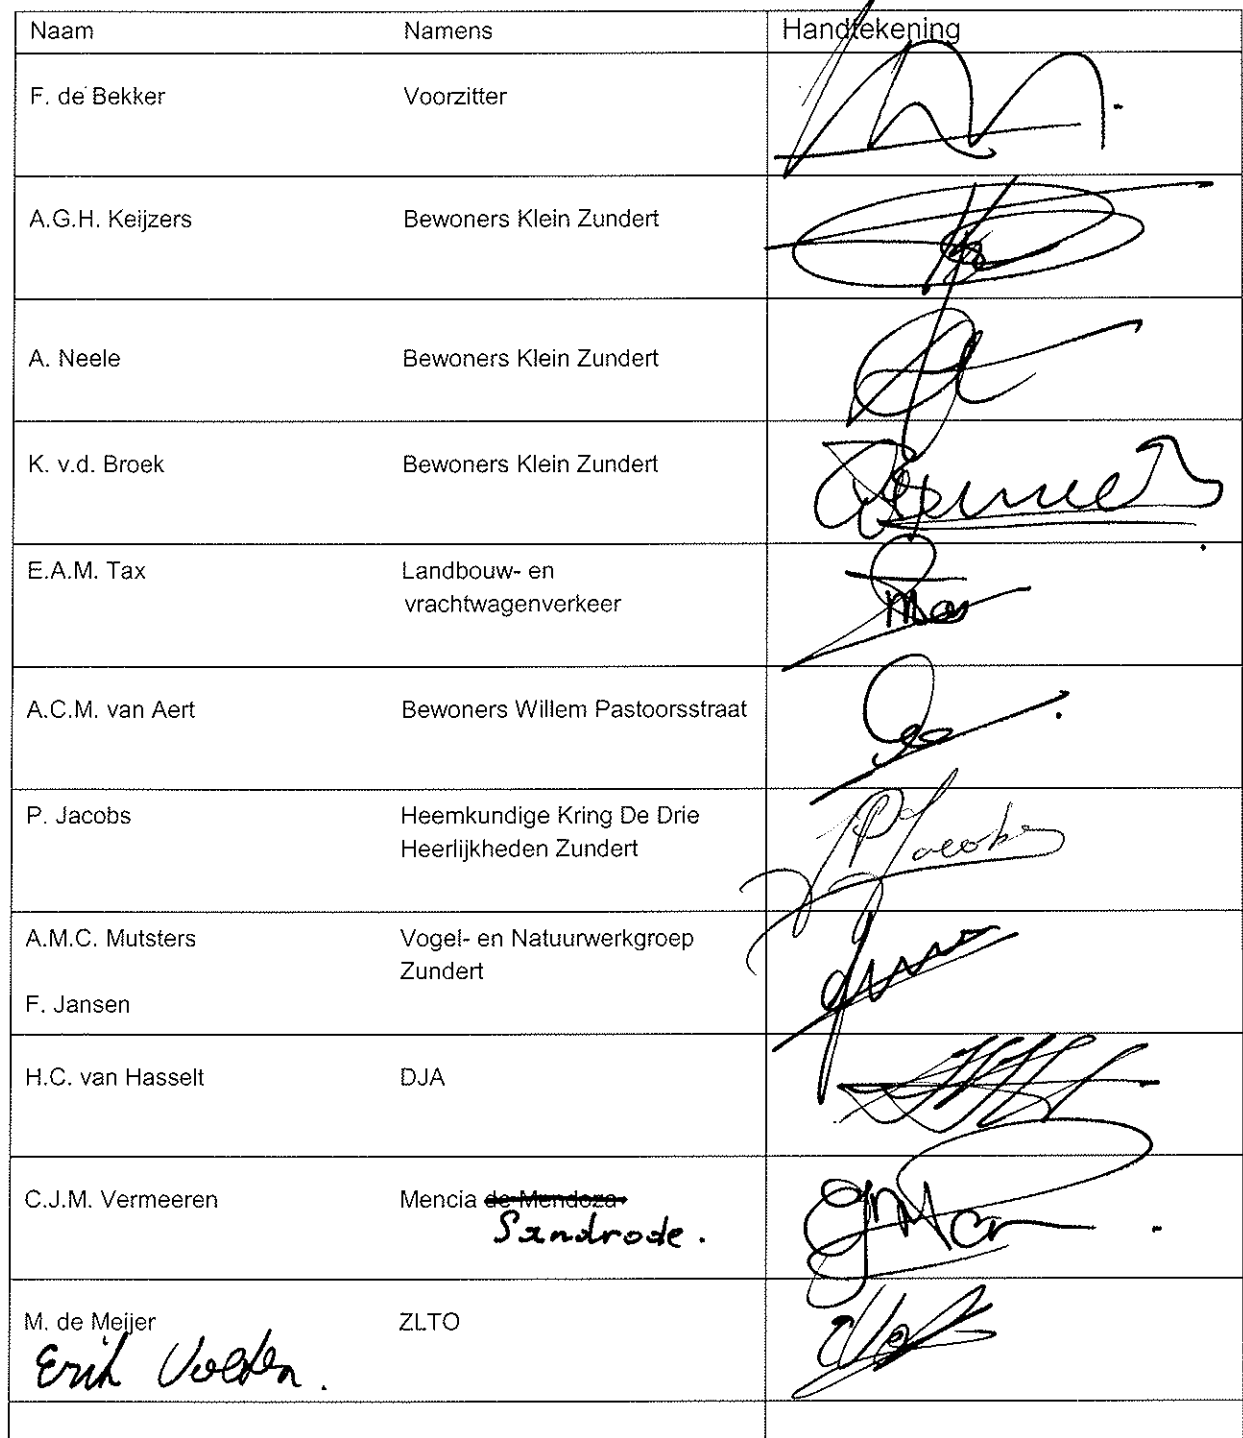 Naam Namens Handtekening
F. de Bekker Voorzitter
A.G.H. Keijzers Bewoners Klein Zundert
A. Neele Bewoners Klein Zundert
K. v.d. Broek Bewoners Klein Zundert
E.A.M. Tax Landbouw- en
vrachtwagenverkeer
A.C.M. van Aert Bewoners Willem Pastoorsstraat
P. Jacobs Heemkundige Kring De Drie
Heerlijkheden Zundert
Jacobs
A.M.C. Mutsters Vogel- en Natuurwerkgroep
Zundert
F. Jansen
H.C. van Hasselt DJA
C.J.M. Vermeeren Mencia de Mendoza
Sandrode.
M. de Meijer ZLTO
Erik